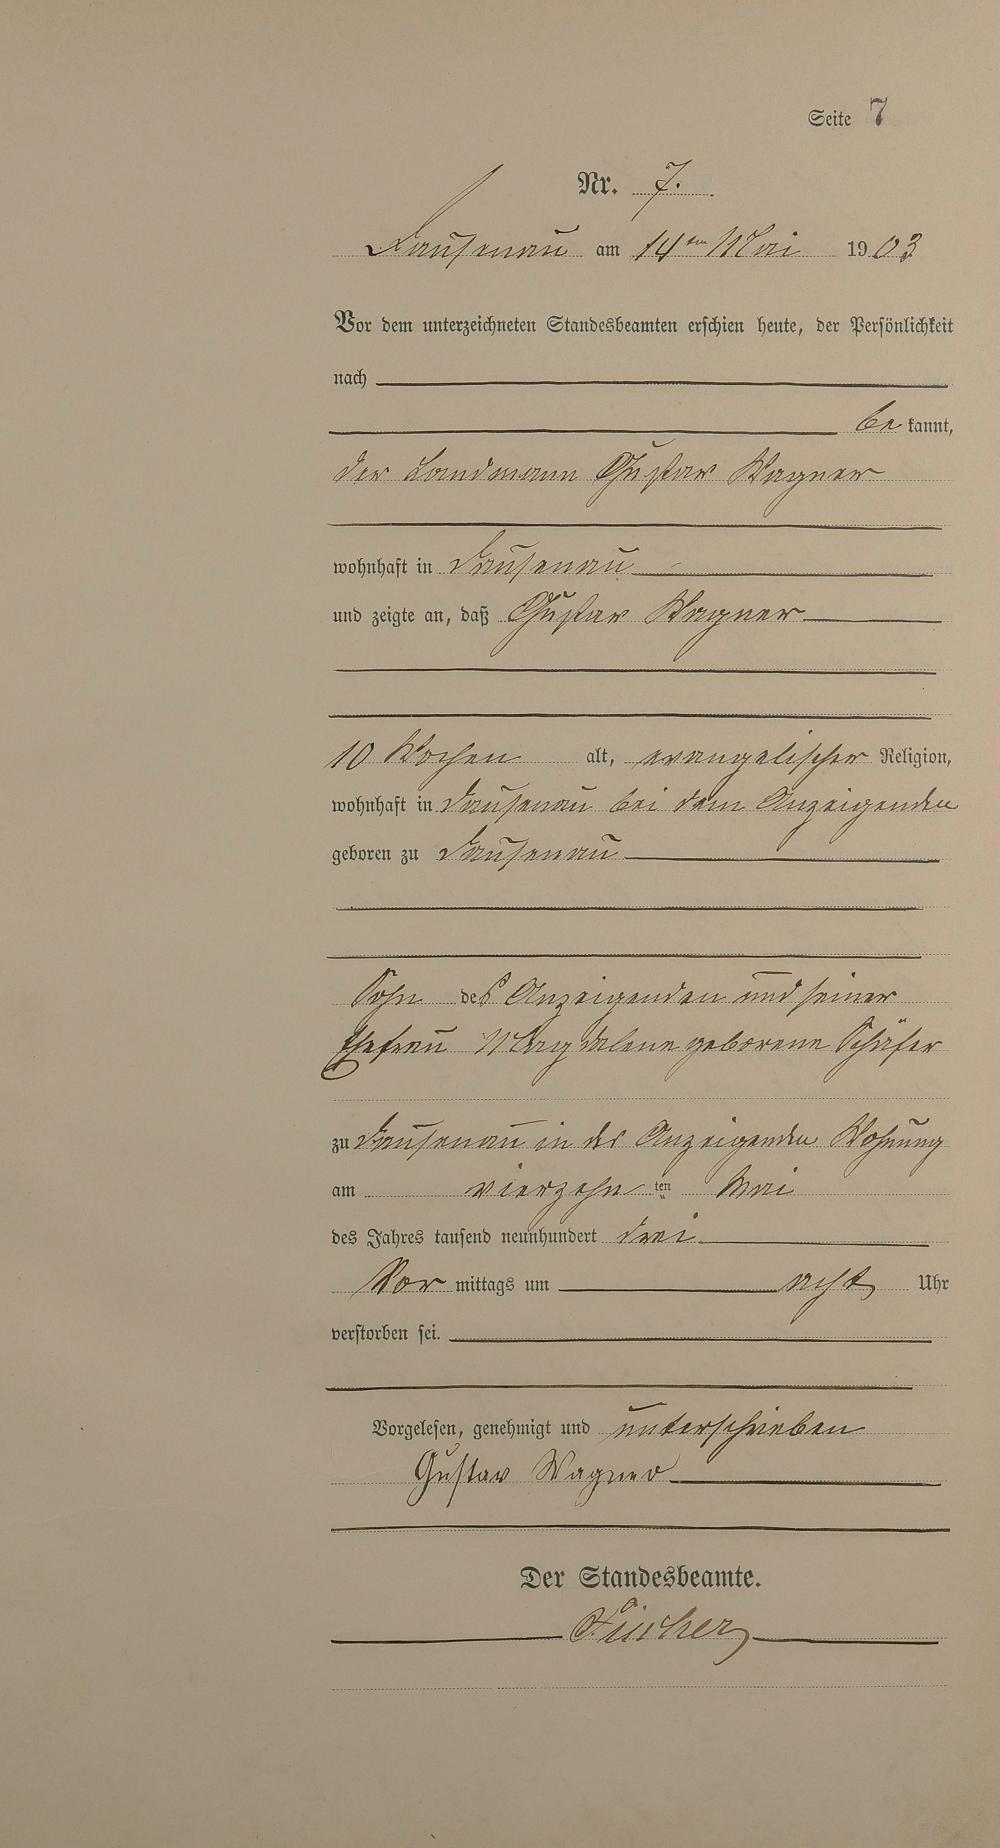 Seite 7
Nr. 7.
Dausenau am 14ten Mai 1903
Vor dem unterzeichneten Standesbeamten erschien heute, der Persönlichkeit
nach
be kannt,
der Landmann Gustav Wagner
wohnhaft in Dausenau
und zeigte an, daß Gustav Wagner
10 Wochen alt, evangelischer Religion,
wohnhaft in Dausenau bei dem Anzeigenden
geboren zu Dausenau
Sohn des Anzeigenden und seiner
Ehefrau Magdalene geborene Schäfer
zu Dausenau in des Anzeigenden Wohnung
am vierzehn ten Mai
des Jahres tausend neunhundert drei
Vor mittags um acht Uhr
verstorben sei.
Vorgelesen, genehmigt und unterschrieben
Gustav Wagner
Der Standesbeamte.